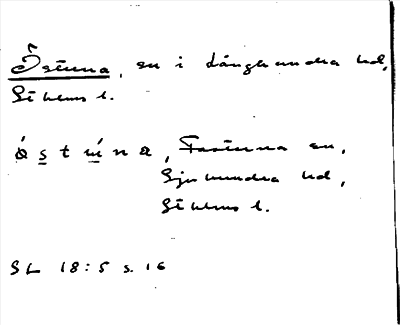 Östuna, sn i Långhundra hd,
Sthlms l.
östuna, Fasterna sn,
Sjuhundra hd,
Sthlms l.
SL 18:5 s. 16